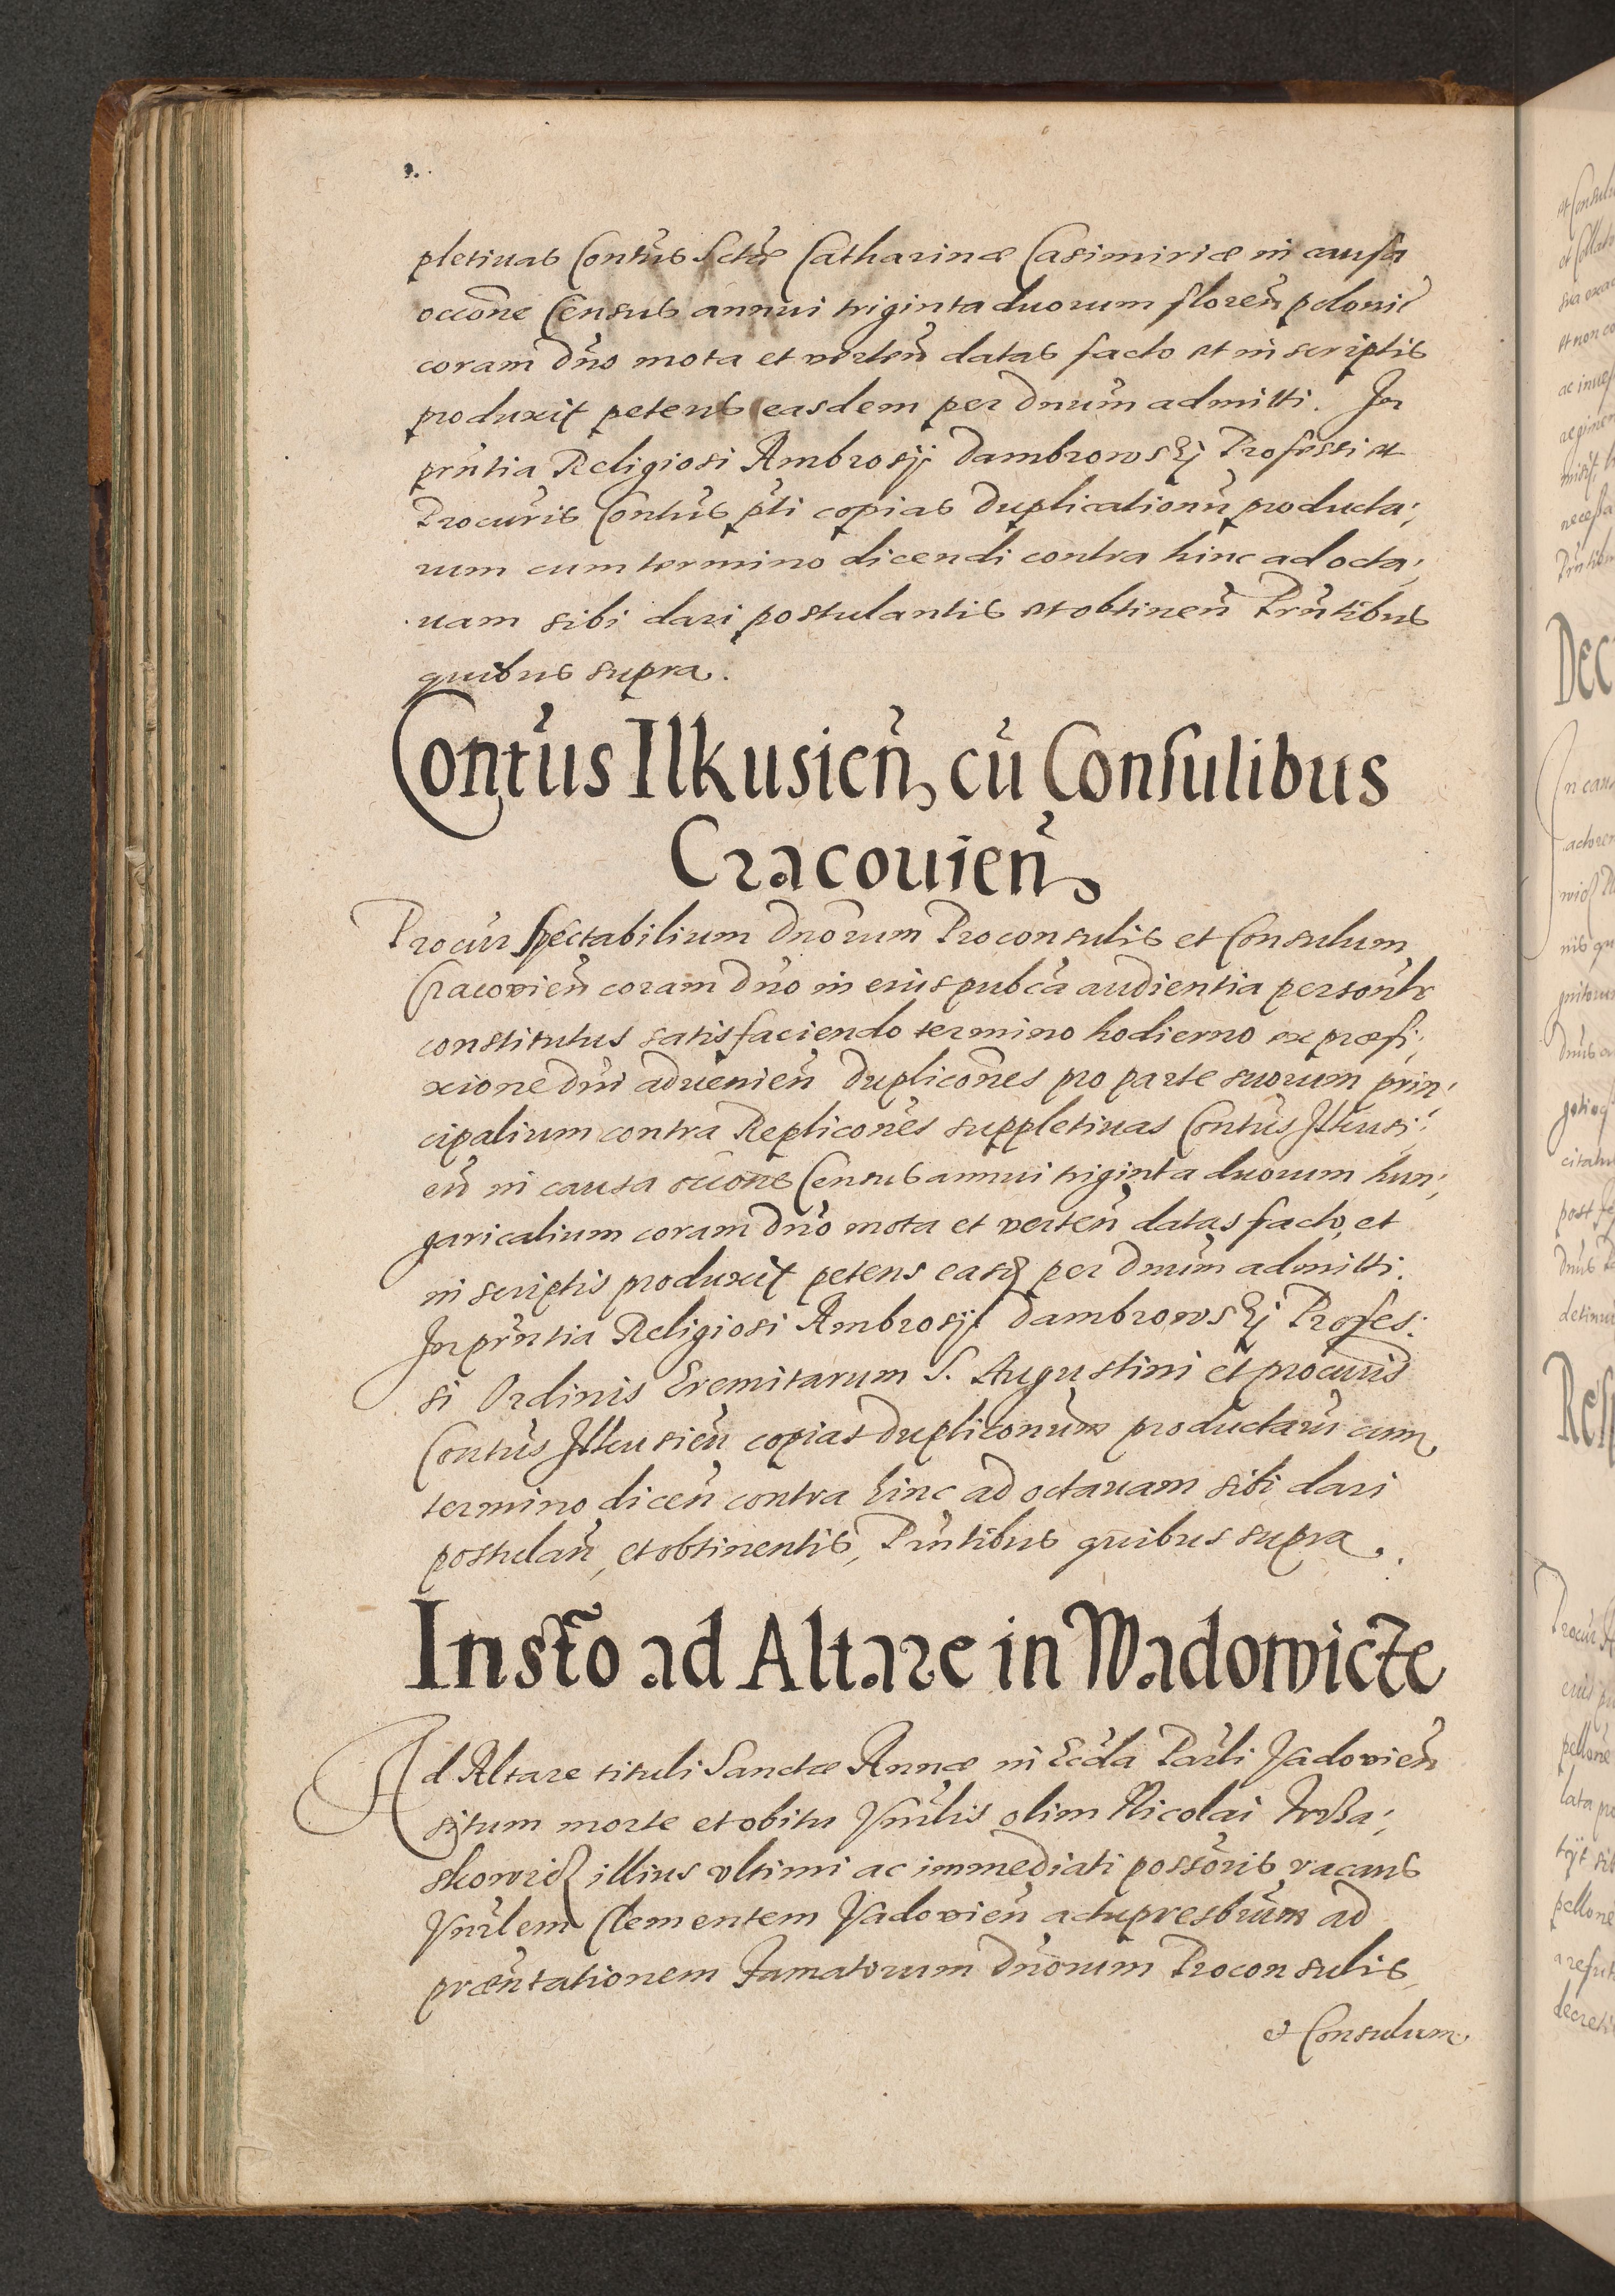 pletiuas Contus Sctæ Catharinæ Casimiriæ in causa
occone Census annui triginta duorum floren polonic
coram dno mota et verten datas facto et in scriptis
produxit petens easdem per dnum admitti. In
prntia Religiosi Ambrosij Dambrowskj Professi et
Procuris Contus pti copias duplicationu producta;
rum cum termino dicendi contra hinc ad octa;
uam sibi dari postulantis et obtinen Prntibus
quibus supra.
Contus Ilkusien cu Consulibus
Cracouien
Procur Spectabilium dnorum Proconsulis et Consulum
Cracovien coram dno in eius pubca audientia personlr
constitutus satisfaciendo termino hodierno ex præfi;
xione dni aduenien duplicones pro parte suorum prin;
cipalium contra Replicones suppletiuas Contus Ilkusi;
en in causa occone Census annui triginta duorum hun;
garicalium coram dno mota et verten datas facto, et
in scriptis produxit petens easd per dnum admitti.
In prntia Religiosi Ambrosij Dambrowskj Profes:
si Ordinis Eremitarum S. Augustini et procuris
Contus Ilkusien copias dupliconum productaru cum
termino dicen contra hinc ad octauam sibi dari
postulan, et obtinentis, Prntibus quibus supra.
Insto ad Altare in Wadowicze
Ad Altare tituli Sanctæ Annæ in Eccla Parli Vadovien
situm morte et obitu Vnrlis olim Nicolai
illius vltimi ac immediati possoris vacans
Vnrlem Clementem Vadovien actu presbrum ad
præntationem Famatorum dnorum Proconsulis
et Consulum